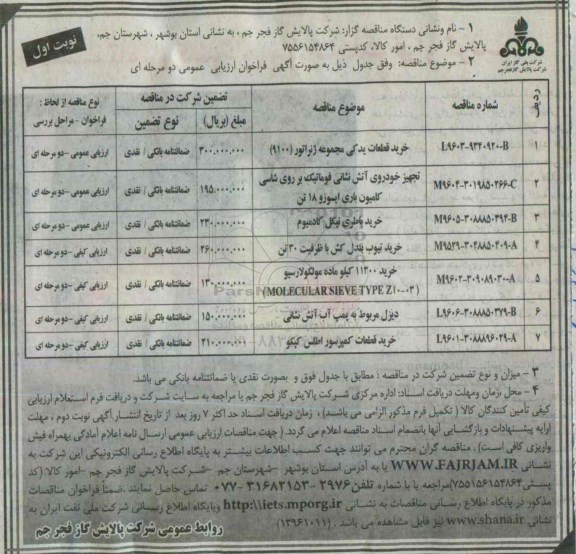 نوبت اول
شرکت ملی گاز ایران
شرکت پالایش گاز فجر جم
۱ - نام ونشانی دستگاه مناقصه گزار: شرکت پالایش گاز فجر جم ، به نشانی استان بوشهر ، شهرستان جم،
پالایش گاز فجر جم ، امور کالا، کدپستی ۷۵۵۶۱۵۴۸۶۴
۲ - موضوع مناقصه: وفق جدول ذیل به صورت آگهی فراخوان ارزیابی عمومی دو مرحله ای
ردیف | شماره مناقصه | موضوع مناقصه | تضمین شرکت در مناقصه | نوع مناقصه از لحاظ :
مبلغ (ریال) | نوع تضمین | فراخوان - مراحل بررسی
۱ | L۹۶۰۳-۹۳۴۰۹۲۰-B | خرید قطعات یدکی مجموعه ژنراتور (۹۱۰۰) | ۳۰۰,۰۰۰,۰۰۰ | ضمانتنامه بانکی / نقدی | ارزیابی عمومی -دو مرحله ای
۲ | M۹۶۰۴-۳۰۱۹۸۵۰۲۶۶-C | تجهیز خودروی آتش نشانی فوماتیک بر روی شاسی
کامیون باری ایسوزو ۱۸ تن | ۱۹۵,۰۰۰,۰۰۰ | ضمانتنامه بانکی / نقدی | ارزیابی عمومی -دو مرحله ای
۳ | M۹۶۰۵-۳۰۸۸۸۵۰۳۹۴-B | خرید باطری نیکل کادمیوم | ۲۳۰,۰۰۰,۰۰۰ | ضمانتنامه بانکی / نقدی | ارزیابی عمومی -دو مرحله ای
۴ | M۹۵۲۹-۳۰۴۸۸۵۰۴۰۹-A | خرید تیوب بندل کش با ظرفیت ۳۰ تن | ۲۶۰,۰۰۰,۰۰۰ | ضمانتنامه بانکی / نقدی | ارزیابی کیفی -دو مرحله ای
۵ | M۹۶۰۲-۳۰۹۰۸۹۰۳۰۰-A | خرید ۱۱۲۰۰ کیلو ماده مولکولارسیو
(MOLECULAR SIEVE TYPE Z۱۰-۰۳) | ۱۳۰,۰۰۰,۰۰۰ | ضمانتنامه بانکی / نقدی | ارزیابی کیفی -دو مرحله ای
۶ | L۹۶۰۶-۳۰۸۸۸۵۰۳۷۹-B | دیزل مربوط به پمپ آب آتش نشانی | ۱۵۰,۰۰۰,۰۰۰ | ضمانتنامه بانکی / نقدی | ارزیابی عمومی -دو مرحله ای
۷ | L۹۶۰۱-۳۰۸۸۸۹۶۰۲۹-A | خرید قطعات کمپرسور اطلس کپکو | ۲۱۰,۰۰۰,۰۰۰ | ضمانتنامه بانکی / نقدی | ارزیابی کیفی -دو مرحله ای
۳ - میزان و نوع تضمین شرکت در مناقصه : مطابق با جدول فوق و بصورت نقدی یا ضمانتنامه بانکی می باشد.
۴ - محل ،زمان ومهلت دریافت اسناد: اداره مرکزی شرکت پالایش گاز فجر جم یا مراجعه به سایت شرکت و دریافت فرم استعلام ارزیابی
کیفی تأمین کنندگان کالا ( تکمیل فرم مذکور الزامی می باشد) ، زمان دریافت اسناد حد اکثر ۷ روز بعد از تاریخ انتشار آگهی نوبت دوم ، مهلت
ارایه پیشنهادات و بازگشایی آنها بانضمام اسناد مناقصه اعلام می گردد. ( جهت مناقصات ارزیابی عمومی ارسال نامه اعلام آمادگی بهمراه فیش
واریزی کافی است) . مناقصه گران محترم می توانند جهت کسب اطلاعات بیشتر به پایگاه اطلاع رسانی الکترونیکی این شرکت به
نشانی WWW.FAJRJAM.IR یا به آدرس استان بوشهر -شهرستان جم -شرکت پالایش گاز فجر جم -امور کالا (کد
پستی۷۵۵۱۵۶۱۵۴۸۶۴)مراجعه یا با شماره تلفن۳۹۷۶-۳۱۶۸۲۱۵۳-۰۷۷ تماس حاصل نمایند .ضمناً فراخوان مناقصات
مذکور در پایگاه اطلاع رسانی مناقصات به نشانی http:\\iets.mporg.ir وپایگاه اطلاع رسانی شرکت ملی نفت ایران به
نشانی www.shana.ir نیز قابل مشاهده می باشد . (۱۳۹۶۱۰۱۱)
روابط عمومی شرکت پالایش گاز فجر جم